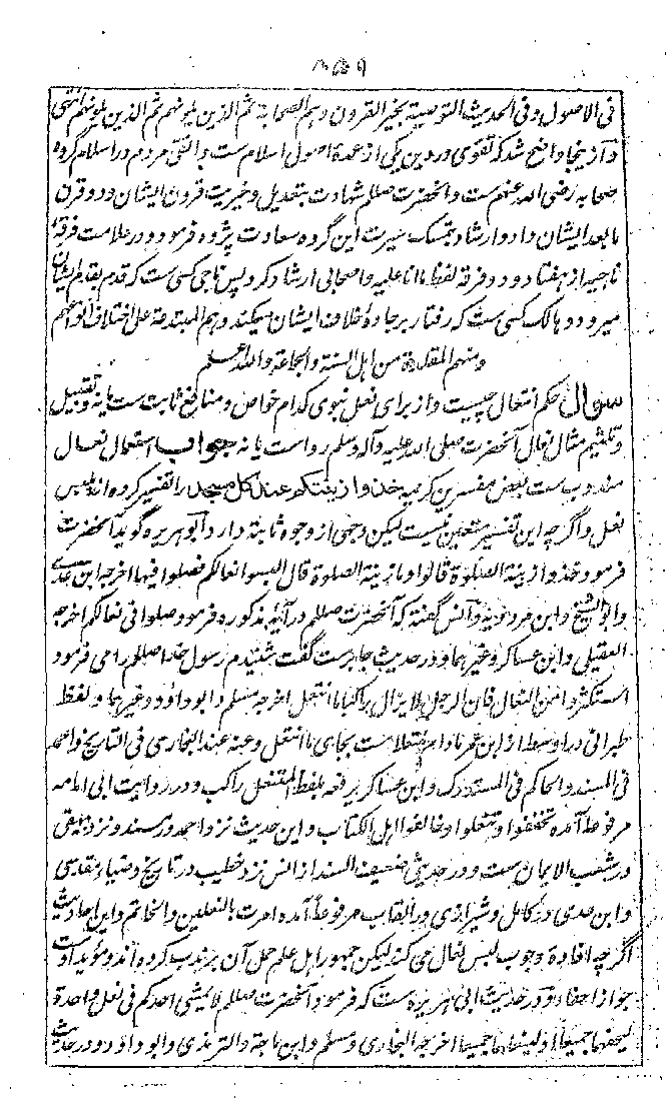 ۳۵۹
فی الاصول و فی الحدیث التوصیة بخیر القرون و هم الصحابة ثم الذین یلونهم ثم الذین یلونهم انتهی
و ازینجا واضح شد که تقوی در دین یکی از عمدهٔ اصول اسلام ست و اتقی مردم در اسلام گروه
صحابه رضی الله عنهم ست و آنحضرت صللم شهادت بتعدیل و خیریت قرون ایشان و دو قرن
ما بعد ایشان داد و ارشاد بتمسک سیرت این گروه سعادت پژوه فرمود و در علامت فرقهٔ
ناجیه از هفتاد و دو فرقه لفظ ما انا علیه و اصحابی ارشاد کرد پس ناجی کسی ست که قدم بقدم ایشان
میرود و هالک کسی ست که رفتار بر جادهٔ خلاف ایشان میکند و هم المبتدعة علی اختلاف انواعهم
و منهم المقلدة من اهل السنة و الجماعة والله اعلم
سوال حکم انتعال چیست و از برای نعل نبوی کدام خواص و منافع ثابت ست یا نه و تقبیل
و تلثیم مثال نعال آنحضرت صلی الله علیه و آله وسلم رواست یا نه جواب استعمال نعال
مندوب ست بعض مفسرین کریمه خذوا زینتکم عند کل مسجد را تفسیر کرده اند بلبس
نعل و اگرچه این تفسیر متعین نیست لیکن وجهی از وجوه ثابته دارد ابو هریره گوید آنحضرت
فرمود خذوا زینة الصلوة قالوا و ما زینة الصلوة قال البسوا نعالکم فصلوا فیها اخرجه ابن عدی
و ابو الشیخ و ابن مردویه و انس گفته که آنحضرت صللم در آیهٔ مذکوره فرمود صلوا فی نعالکم اخرجه
العقیلی و ابن عساکر و غیرهما و در حدیث جابرست گفت شنیدم رسول خدا صللم را می فرمود
استکثروا من النعال فان الرجل لا یزال راکبا ما انتعل اخرجه مسلم و ابو داود و غیرهما و لفظ
طبرانی در اوسط از ابن عمر ما دام منتعلا ست بجای ما انتعل و عنه عند البخاری فی التاریخ و احمد
فی المسند و الحاکم فی المستدرک و ابن عساکر یرفعه بلفظ المنتعل راکب و در روایت ابی امامه
مرفوعا آمده تخففوا و تنعلوا و خالفوا اهل الکتاب و این حدیث نزد احمد در مسند و نزد بیهقی
در شعب الایمان ست و در حدیثی ضعیف السند از انس نزد خطیب در تاریخ و ضیاء مقدسی
و ابن عدی در کامل و شیرازی در القاب مرفوعا آمده امرت بالنعلین و الخاتم و این احادیث
اگرچه افادهٔ وجوب لبس نعال می کند لیکن جمهور اهل علم حمل آن بر ندب کرده اند و مؤید اوست
جواز احفا و در حدیث ابی هریره ست که فرمود آنحضرت صللم لا یمشی احدکم فی نعل واحدة
لیحفهما جمیعا او لینعلهما جمیعا اخرجه البخاری و مسلم و ابن ماجة و الترمذی و ابو داود و در حدیث